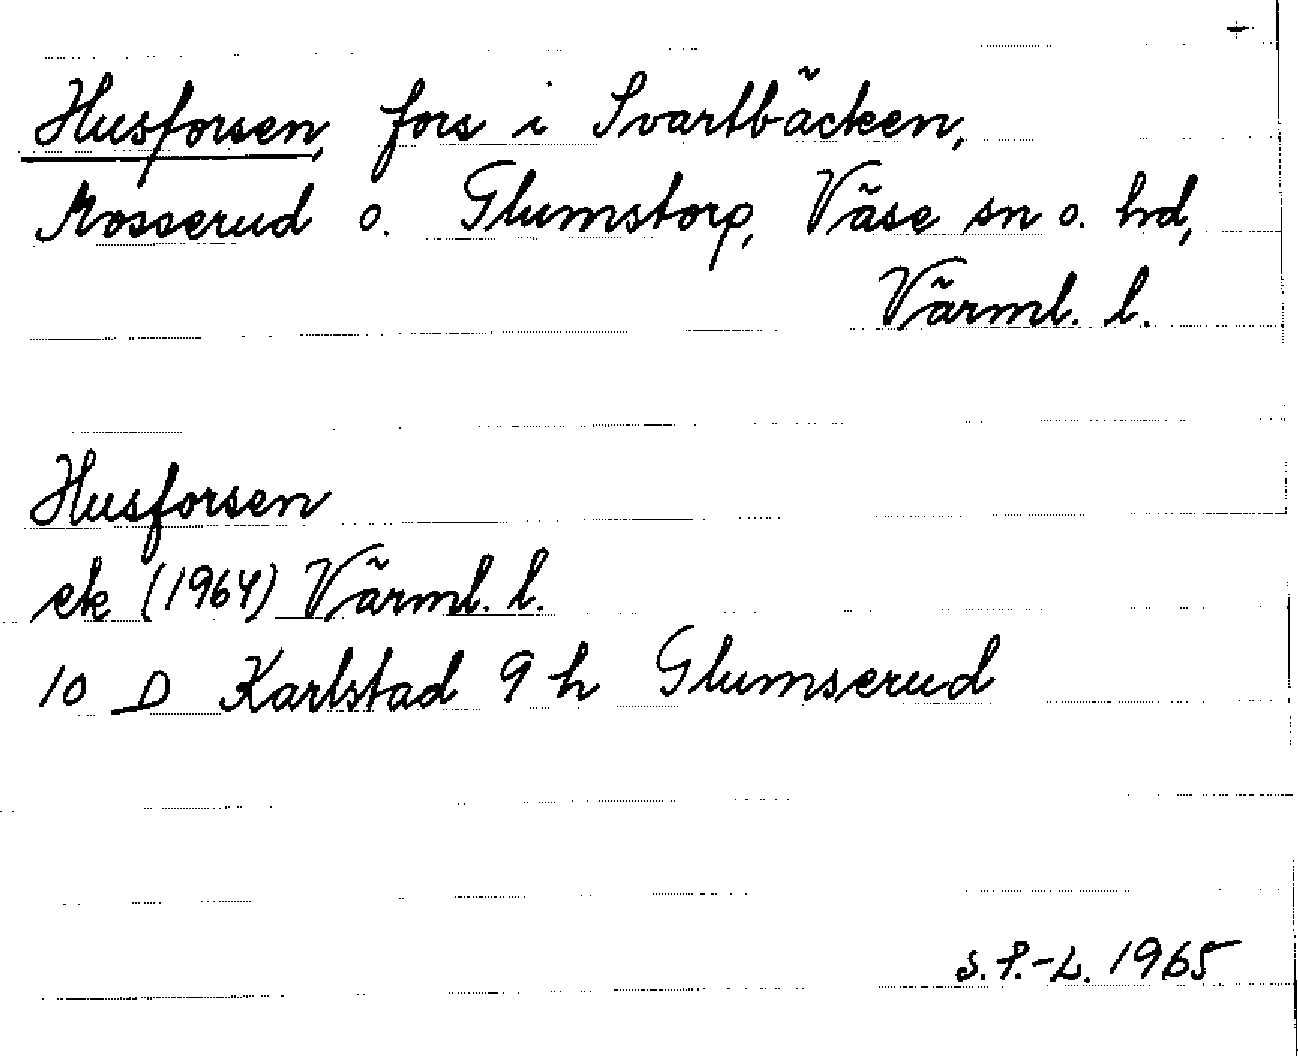 Husforsen, fors i Svartbäcken,
Mosserud o. Glumstorp, Väse sn o. hd,
Värml. l.
Husforsen
ek (1964) Värml. l.
10 D Karlstad 9 h Glumserud
S. P.-L. 1965